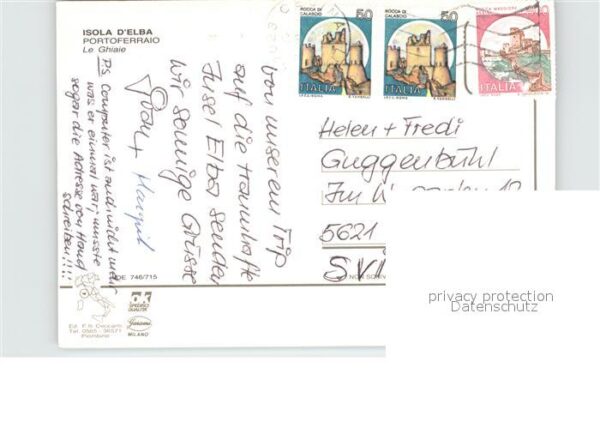 ISOLA D'ELBA
PORTOFERRAIO
Le Ghiaie
ROCCA DI CALASCIO
50
ITALIA
I.P.Z.S. ROMA
ROCCA DI CALASCIO
50
ITALIA
I.P.Z.S. ROMA
ITALIA
von unserem Trip
auf die traumhafte
Insel Elba senden
wir sonnige Grüsse
+ Margrit
P.S. Computer ist auch nicht mehr
was er einmal war, musste
sogar die Adresse von Hand
schreiben!!!!
Helen + Fredi
Guggenbühl
Im
5621
746/715
Ed. F.lli
Tel. 0565 -
Piombino
ak
QUALITÄT
MILANO
privacy protection
Datenschutz